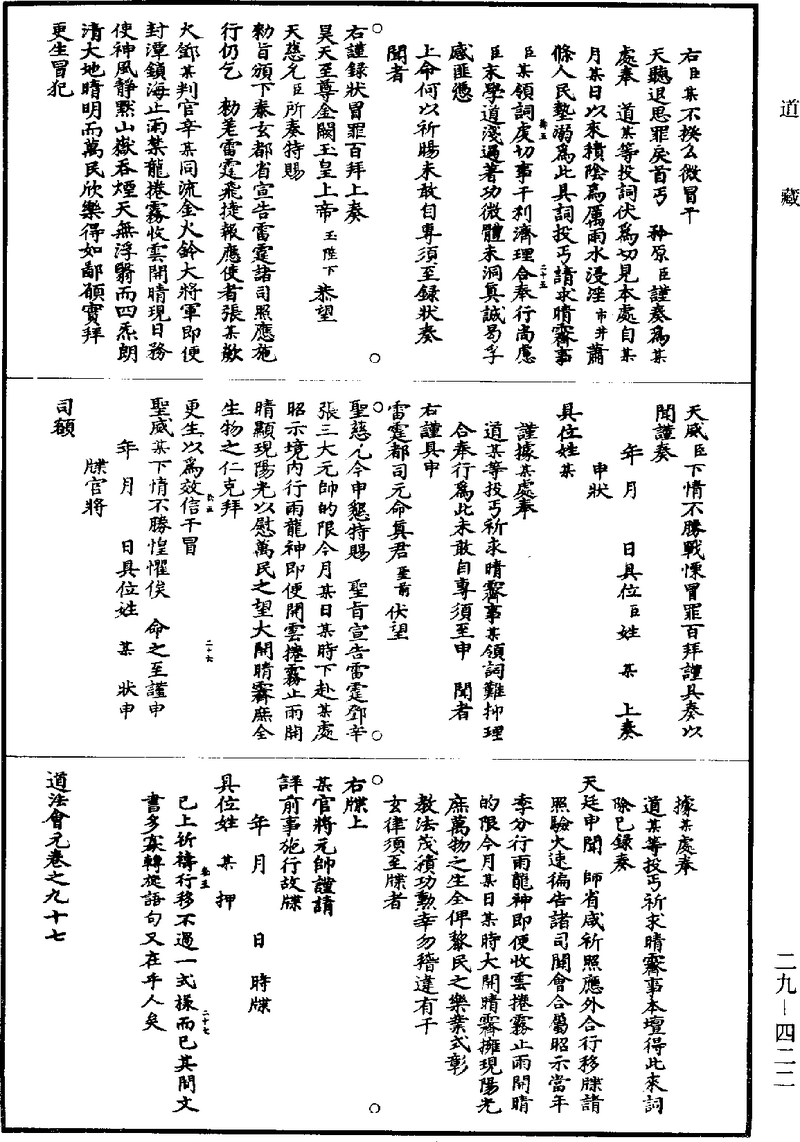 道藏
右臣某不揆么微冒干
天聽退思罪戾首丐　矜原臣謹奏爲某
處奉　道某等投詞伏爲切見本處自某
月某日以來積陰爲厲雨水浸淫市井蕭
條人民墊溺爲此具詞投丐請求晴霽事
臣某領詞虔切事干利濟理合奉行尚慮
臣末學道淺過著功微體未洞真誠曷孚
感匪憑
上命何以祈賜未敢自專須至錄狀奏
聞者
右謹錄狀冒罪百拜上奏
昊天至尊金闕玉皇上帝　玉陛下　恭望
天慈允臣所奏特賜
勑旨頒下泰玄都省宣告雷霆諸司照應施
行仍乞　勑差雷霆飛捷報應使者張某歘
火鄧某判官辛某同流金火鈴大將軍即便
封潭鎖海止雨某龍捲霧收雲開晴現日務
使神風靜默山嶽吞煙天無浮翳而四炁朗
清大地晴明而萬民欣樂得如鄙願實拜
更生冒犯
天威臣下情不勝戰慄冒罪百拜謹具奏以
聞謹奏
年　月　　日具位臣姓　某　上奏
申狀
具位姓某
謹據某處奉
道某等投丐祈求晴霽事某領詞難抑理
合奉行爲此未敢自專須至申　聞者
右謹具申
雷霆都司元命真君　聖前　伏望
聖慈允今申懇特賜　聖旨宣告雷霆鄧辛
張三大元帥的限今月某日某時下赴某處
昭示境内行雨龍神即便開雲捲霧止雨開
晴顯現陽光以慰萬民之望大開晴霽庶全
生物之仁克拜
更生以爲效信干冒
聖威某下情不勝惶懼俟　命之至謹申
年　月　　日具位姓　某　狀申
牒官將
司額
據某處奉
道某等投丐祈求晴霽事本壇得此來詞
除已錄奏
天廷申聞　師省咸祈照應外合行移牒請
照驗火速徧告諸司關會合屬昭示當年
李分行雨龍神即便收雲捲霧止雨開晴
的限今月某日某時大開晴霽擁現陽光
庶萬物之生全俾黎民之樂業式彰
教法茂積功勳幸勿稽違有干
玄律須至牒者
右牒上
某官將元帥謹請
詳前事施行故牒
年　月　　日　時牒
具位姓　某　押
已上祈禱行移不過一式樣而已其間文
書多寡轉旋語句又在乎人矣
道法會元卷之九十七
二九—四二二